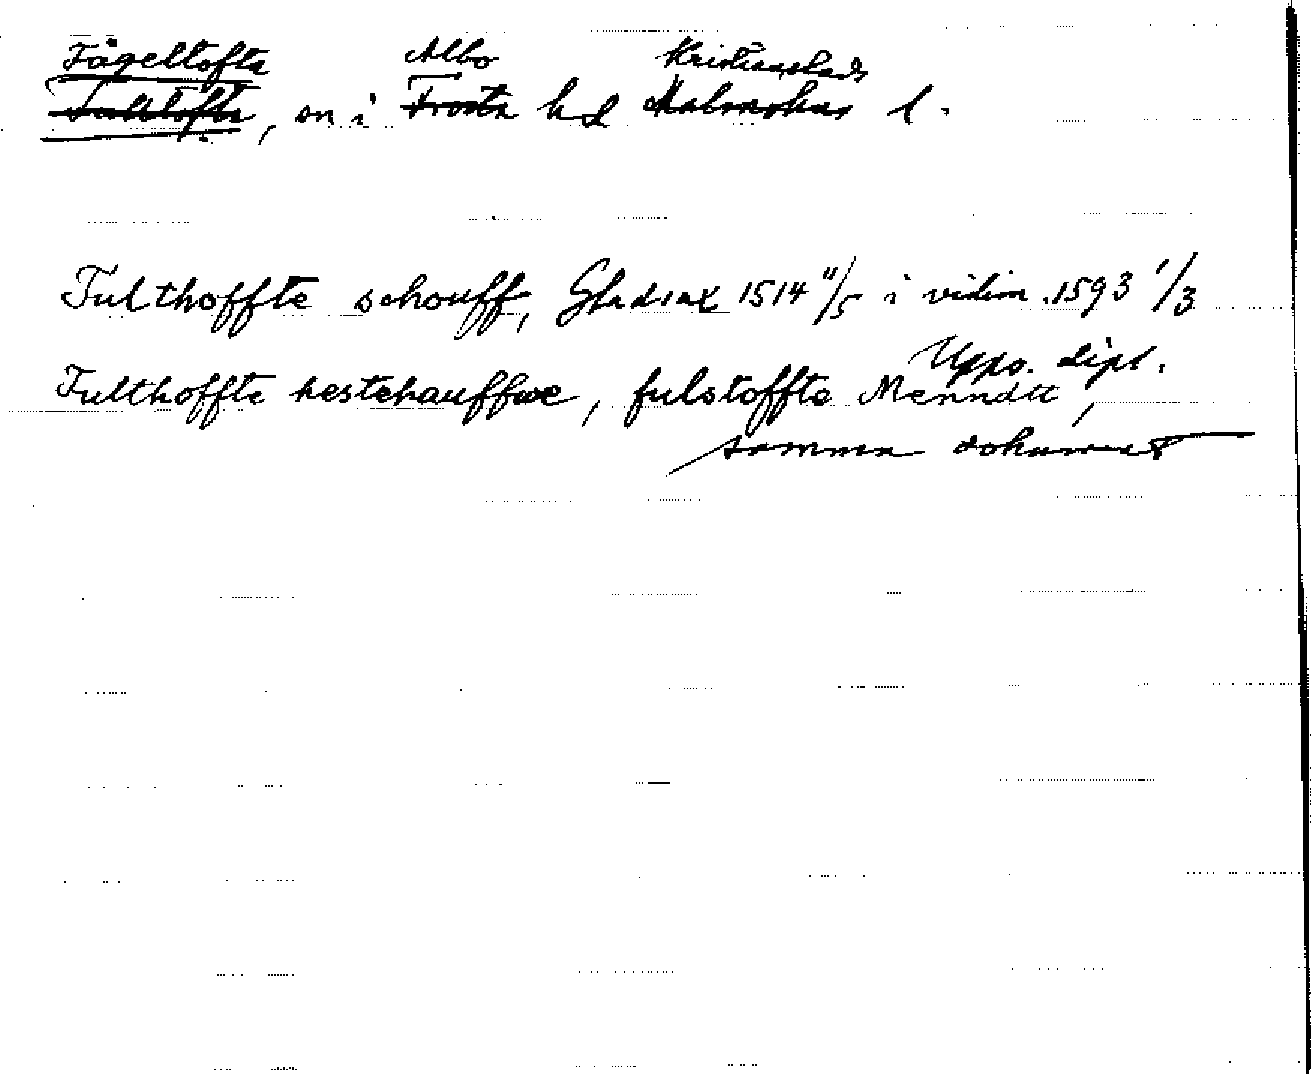 Fågeltofta Albo Kristianstads
Fulltofta, sn i Frosta hd Malmöhus l.
Fulthoffte schouff, Gladsax 1514 11/5 i vidim. 1593 1/3
Upps. dipl.
Fulthoffte hestehauffwe, fulstoffte Menndtt,
samma dokument